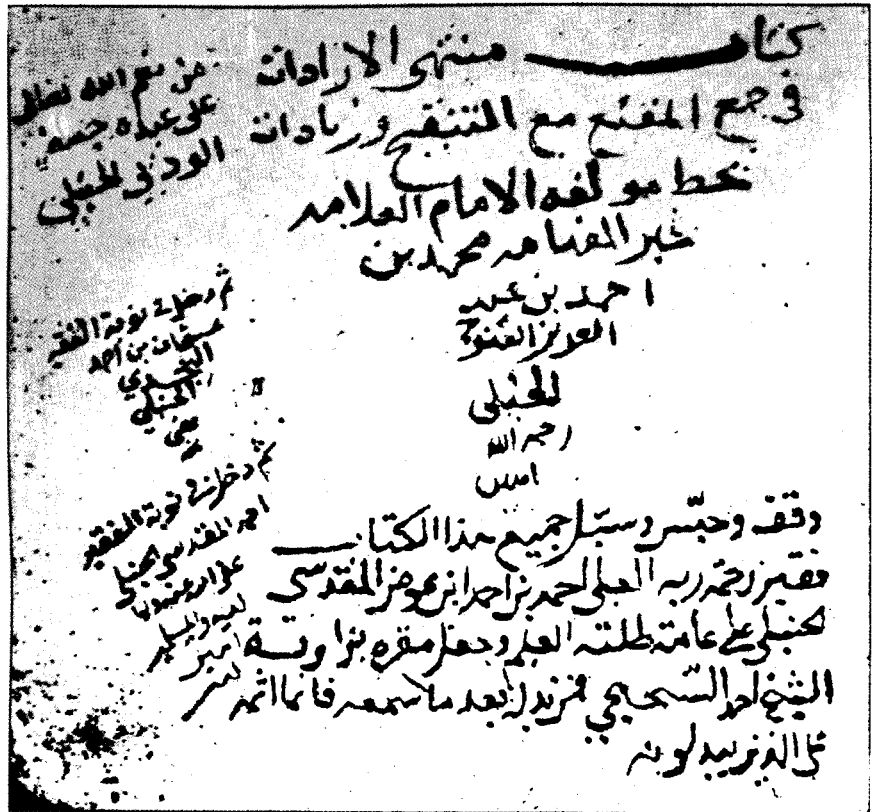 كتاب منتهى الارادات
في جمع المقنع مع التنقيح وزيادات
بخط مولفه الامام العلامه
محمد بن
احمد بن عبد
العزيز الفتوحي
الحنبلي
رحمه الله
امين
من نعم الله تعالى
على عبده
الحنبلي
ثم دخل في نوبة الفقير
عثمان بن احمد
النجدي
الحنبلي
عفي
عنه
ثم دخل في نوبة الفقير
احمد المقدسي الحنبلي
وقف وحبس وسبل جميع هذا الكتاب
فقير رحمة ربه العلي احمد بن احمد ابن عوض المقدسي
لحنبلي على عامة طلبة العلم وجعل مقره بزاوية
الشيخ احمد فمن بدله بعد ما سمعه فانما اثمه
على الذين يبدلونه